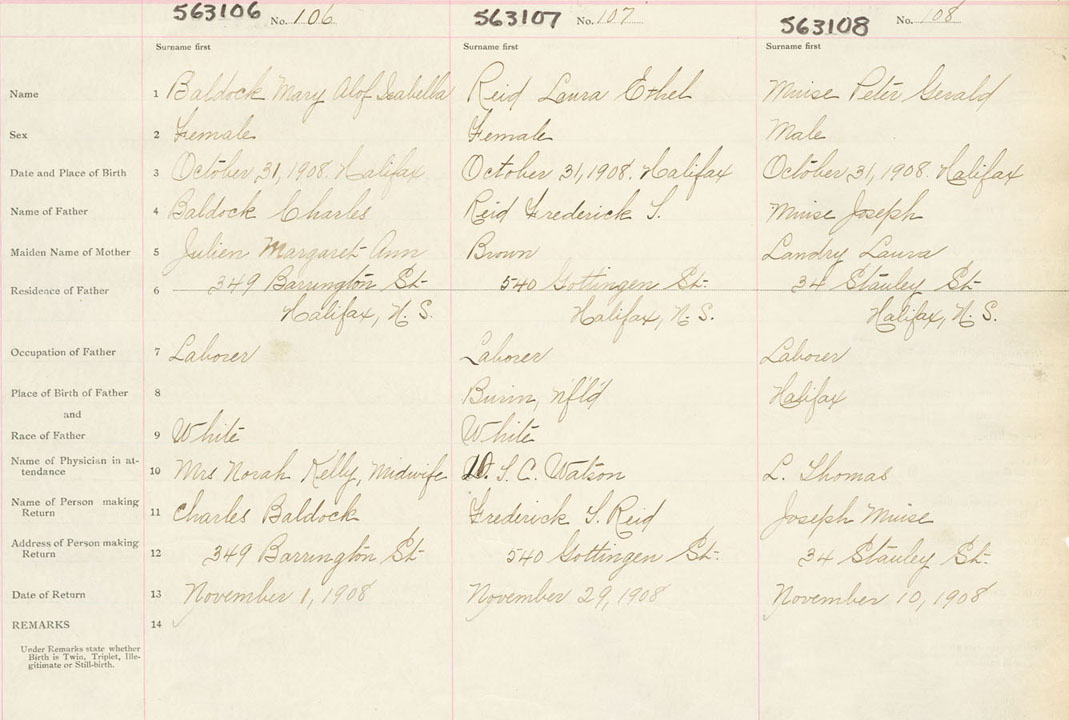 563106 No. 106 563107 No. 107 563108 No. 108
Surname first Surname first Surname first
Name 1 Baldock Mary Alof Isabella Reid Laura Ethel Muise Peter Gerald
Sex 2 Female Female Male
Date and Place of Birth 3 October 31, 1908. Halifax October 31, 1908. Halifax October 31, 1908. Halifax
Name of Father 4 Baldock Charles Reid Frederick S. Muise Joseph
Maiden Name of Mother 5 Julien Margaret Ann Brown Landry Laura
Residence of Father 6 349 Barrington St. 540 Gottingen St. 34 Stanley St.
Halifax, N. S. Halifax, N. S. Halifax, N. S.
Occupation of Father 7 Laborer Laborer Laborer
Place of Birth of Father 8 Burin, Nfld Halifax
and
Race of Father 9 White White
Name of Physician in at-
tendance 10 Mrs Norah Kelly, Midwife S. C. Watson L. Thomas
Name of Person making
Return 11 Charles Baldock Frederick S. Reid Joseph Muise
Address of Person making
Return 12 349 Barrington St. 540 Gottingen St. 34 Stanley St.
Date of Return 13 November 1, 1908 November 29, 1908 November 10, 1908
REMARKS 14
Under Remarks state whether
Birth is Twin, Triplet, Ille-
gitimate or Still-birth.